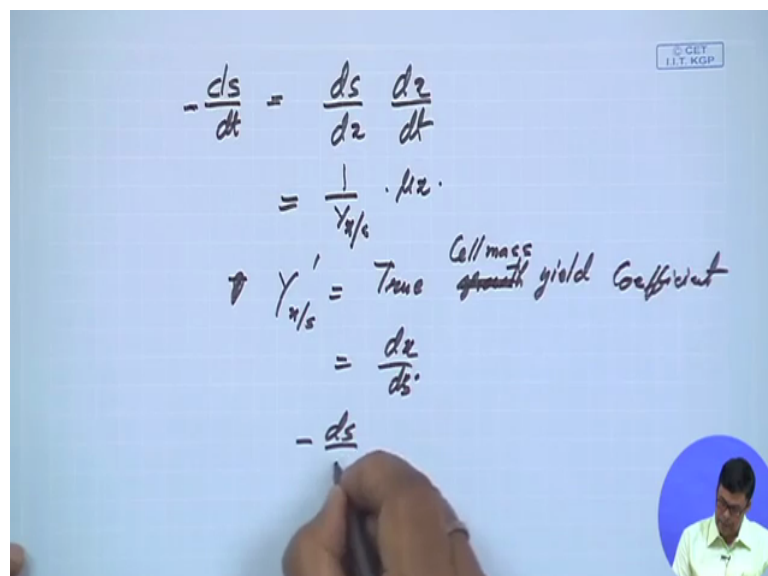 © CET
I.I.T. KGP
- ds/dt = ds/dx dx/dt
= 1/Y x/s . μx .
Y' x/s = True Cell mass yield Coefficient
= dx/ds .
- ds